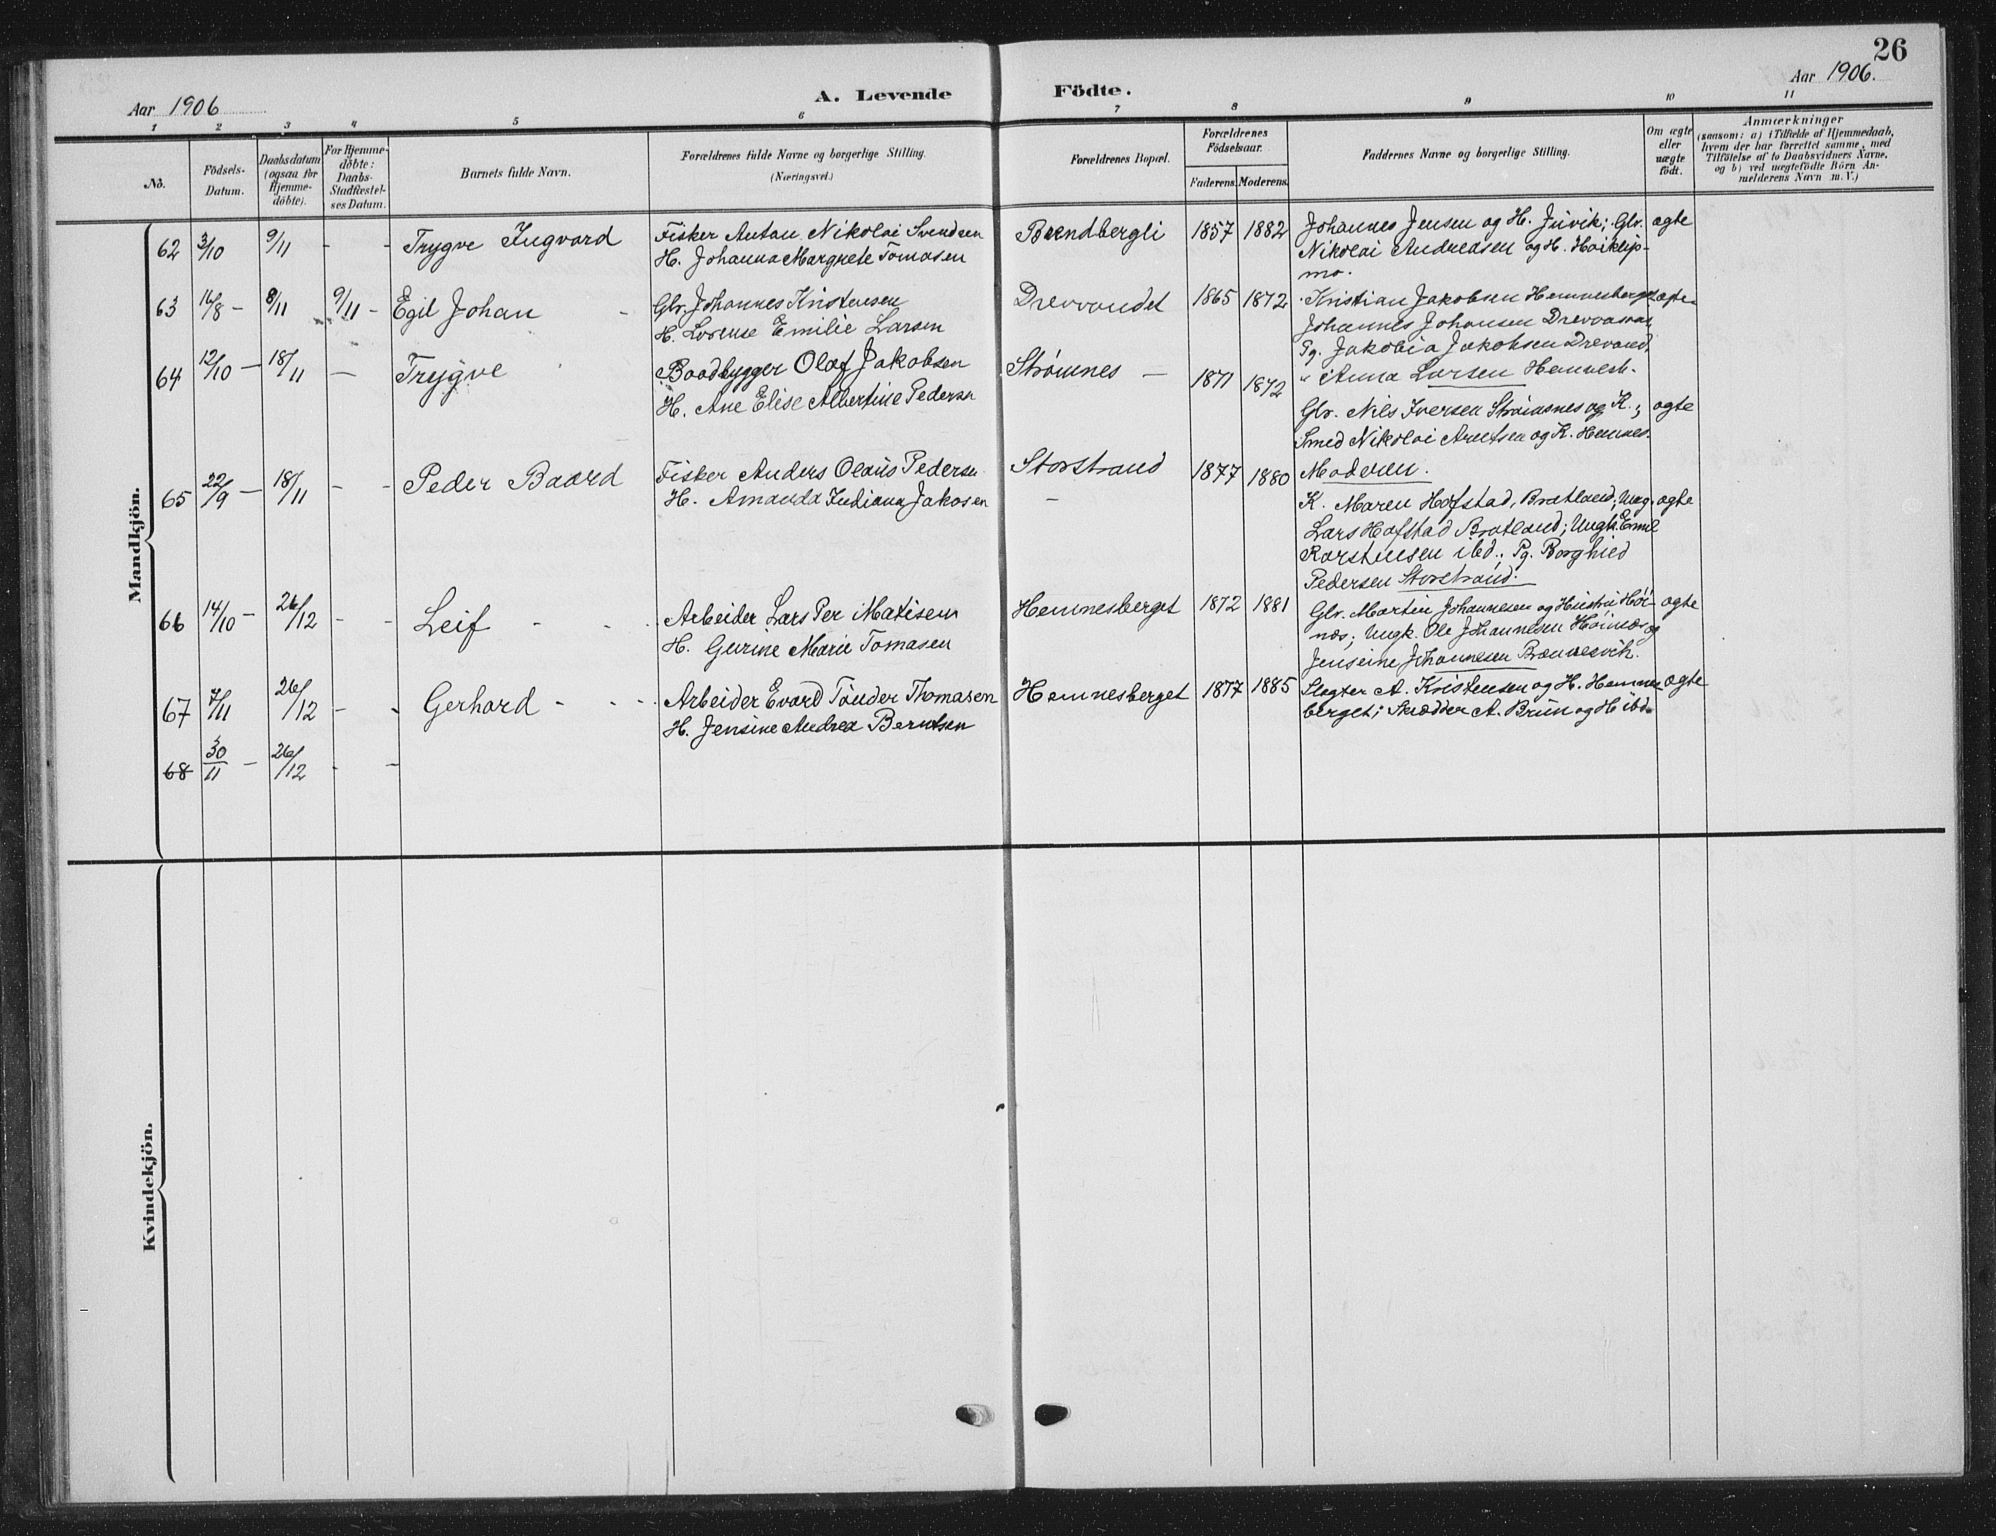 26
Aar 1906
A. Levende Födte.
Aar 1906.
1 2 3 4 5 6 7 8 9 10 11
No.
Födsels-Datum.
Daabsdatum (ogsaa for Hjemme-döbte).
For Hjemme-döbte: Daabs-Stadfæstel-ses Datum.
Barnets fulde Navn.
Forældrenes fulde Navne og borgerlige Stilling.
(Næringsvei.)
Forældrenes Bopæl.
Forældrenes Födselsaar.
Faderens. Moderens.
Faddernes Navne og borgerlige Stilling.
Om ægte eller uægte födt.
Anmærkninger
(saasom: a) i Tilfælde af Hjemmedaab,
hvem der har forrettet samme, med
Tilföielse af to Daabsvidners Navne,
og b) ved uægtefödte Börn An-
melderens Navn m. V.)
Mandkjön.
62 3/10 9/11 - - Trygve Ingvard
Fisker Anton Nikolai Svendsen
H. Johanna Margrete Tomasen
Brendbergli 1857 1882
Johannes Jensen og H. Juvik; Glr.
Nikolai Andreasen og H. Høiklip-
mo.
ægte
63 16/8 - 8/11 9/11 - Egil Johan -
Glr. Johannes Kristensen
H. Lorense Emilie Larsen
Drevvandet 1865 1872
Kristian Jakobsen Hemnesberget
Johannes Johansen Drevvasaas,
Pg. Jakobia Jakobsen Drevand,
" Anna Larsen Hemnesb.
ægte
64 12/10 - 18/11 - Trygve
Baadbygger Olaf Jakobsen
H. Ane Elise Albertine Pedersn
Strømnes - 1871 1872
Glr. Nils Iversen Strømsnes og K.;
Smed Nikolai Arntsen og K. Hemnes.
Moderen.
ægte
65 22/9 - 18/11 - - Peder Baard
Fisker Anders Olaus Pedersn
H. Amanda Indiana Jakosen
Storstrand - 1877 1880
K. Maren Hofstad, Bratland; Ung.
Lars Hofstad Bratland; Ungk. Emil
Karstensen ibd.; Pg. Borghild
Pedersen Storstrand.
ægte
66 14/10 - 26/12 - - Leif - - -
Arbeider Lars Per Matisen
H. Gurine Marie Tomasen
Hemnesberget 1872 1881
Glr. Martin Johannesen og Hustru Høi-
næs; Ungk. Ole Johannesen Høinæs og
Jenseine Johannesen Brennesvik.
ægte
67 7/11 26/12 - - Gerhard - - -
Arbeider Evard Tønder Thomasen
H. Jensine Andrea Berntsen
Hemnesberget 1877 1885
Slagter A. Kristensen og H. Hemnes-
berget; Skrædder A. Brun og H ibd.
ægte
68 30/11 - 26/12 - -
Kvindekjön.